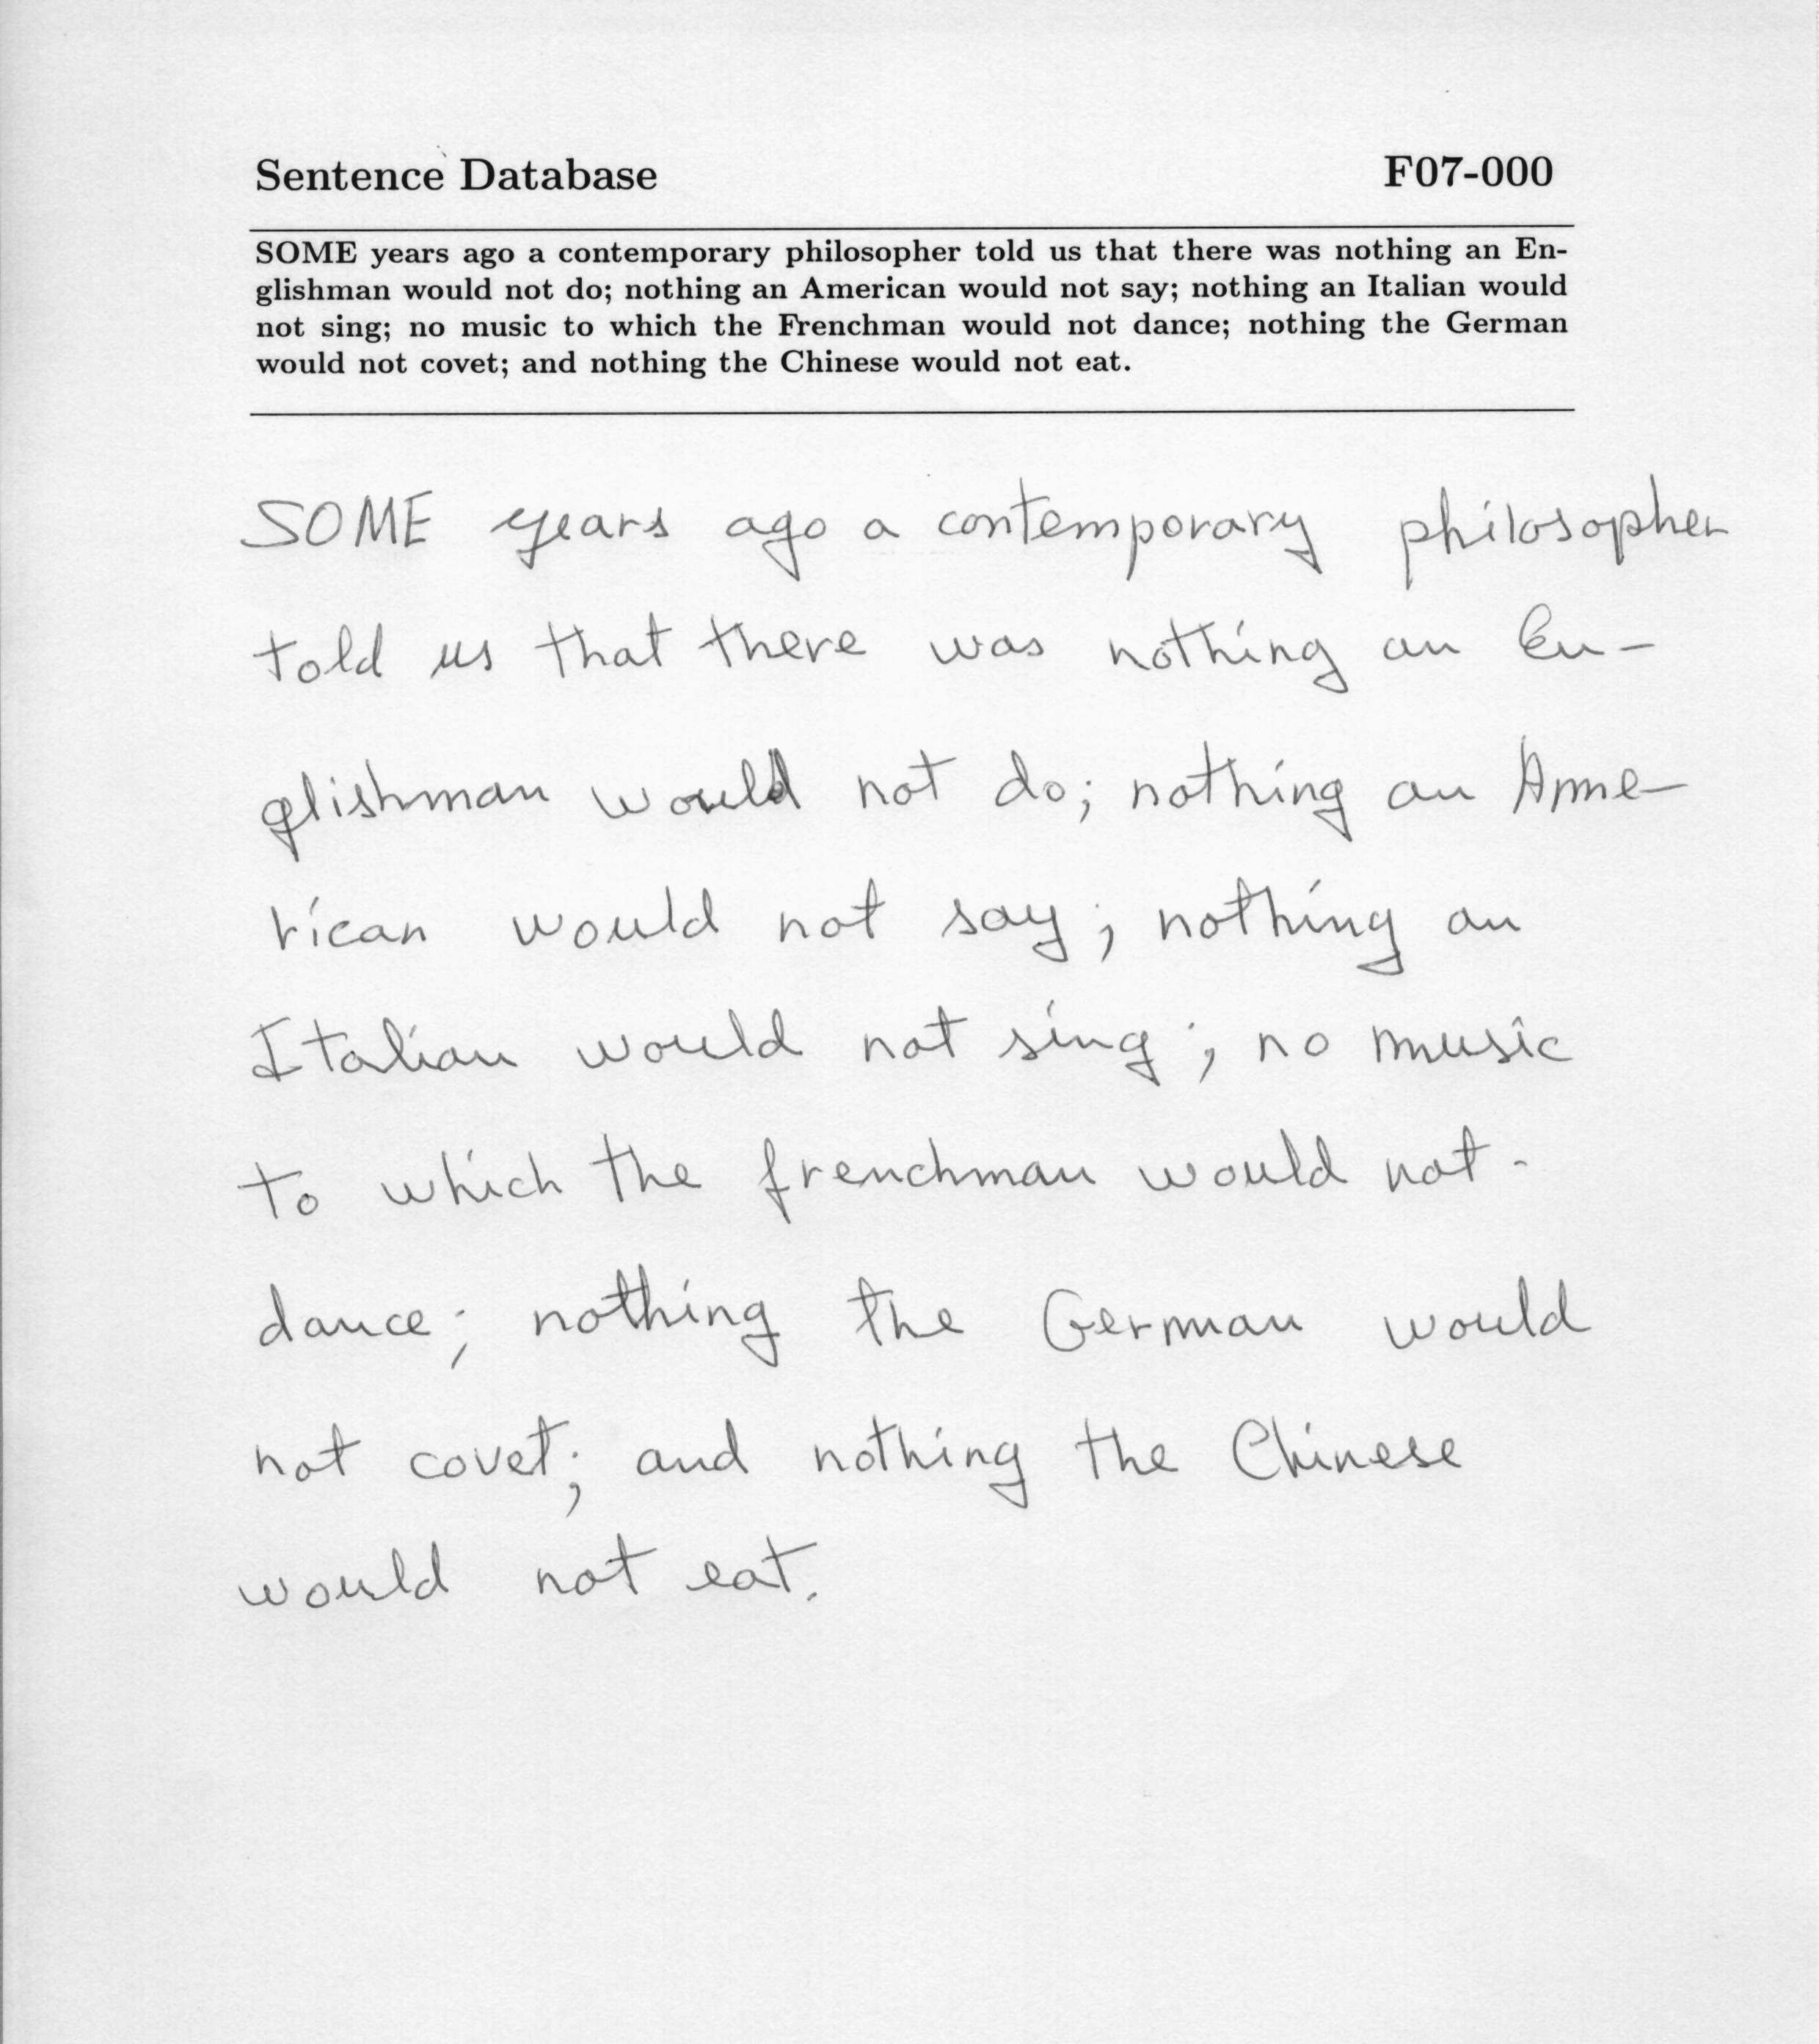 Sentence Database F07-000
SOME years ago a contemporary philosopher told us that there was nothing an En-
glishman would not do; nothing an American would not say; nothing an Italian would
not sing; no music to which the Frenchman would not dance; nothing the German
would not covet; and nothing the Chinese would not eat.
SOME years ago a contemporary philosopher
told us that there was nothing an En-
glishman would not do; nothing an Ame-
rican would not say; nothing an
Italian would not sing; no music
to which the frenchman would not-
dance; nothing the German would
not covet; and nothing the Chinese
would not eat.